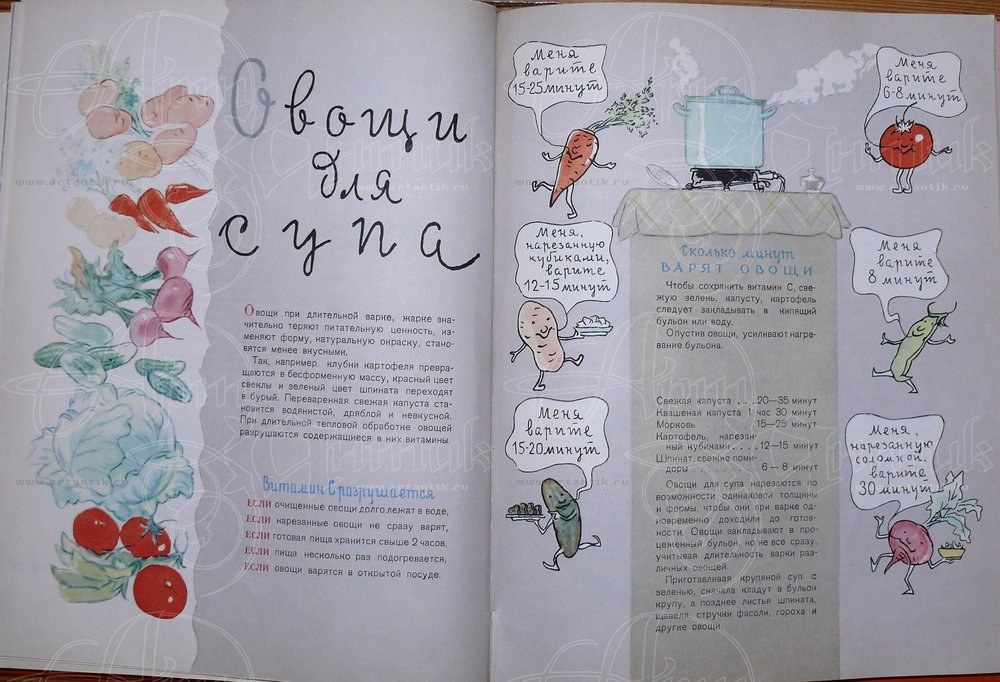 Овощи
для
супа
Овощи при длительной варке, жарке зна-
чительно теряют питательную ценность, из-
меняют форму, натуральную окраску, стано-
вятся менее вкусными.
Так, например, клубни картофеля превра-
щаются в бесформенную массу, красный цвет
свеклы и зеленый цвет шпината переходят
в бурый. Переваренная свежая капуста ста-
новится водянистой, дряблой и невкусной.
При длительной тепловой обработке овощей
разрушаются содержащиеся в них витамины
Витамин С разрушается
ЕСЛИ очищенные овощи долго лежат в воде,
ЕСЛИ нарезанные овощи не сразу варят,
ЕСЛИ готовая пища хранится свыше 2 часов,
ЕСЛИ пища несколько раз подогревается,
ЕСЛИ овощи варятся в открытой посуде.
Меня
варите
15-25 минут
Меня,
нарезанную
кубиками,
варите
12-15 минут
Меня
варите
15-20 минут
Сколько минут
ВАРЯТ ОВОЩИ
Чтобы сохранить витамин С, све-
жую зелень, капусту, картофель
следует закладывать в кипящий
бульон или воду.
Опустив овощи, усиливают нагре-
вание бульона.
Свежая капуста . . . 20—35 минут
Квашеная капуста 1 час 30 минут
Морковь 15—25 минут
Картофель, нарезан-
ный кубиками . . . 12—15 минут
Шпинат, свежие поми-
доры . . . . . . . 6—8 минут
Овощи для супа нарезаются по
возможности одинаковой толщины
и формы, чтобы они при варке од-
новременно доходили до готов-
ности. Овощи закладывают в про-
цеженный бульон, но не все сразу,
учитывая длительность варки раз-
личных овощей.
Приготавливая крупяной суп с
зеленью, сначала кладут в бульон
крупу, а позднее листья шпината,
щавеля, стручки фасоли, гороха и
другие овощи
Меня
варите
6-8 минут
Меня
варите
8 минут
Меня,
нарезанную
соломкой,
варите
30 минут
www.artantik.ru
www.artantik.ru
www.artantik.ru
www.artantik.ru